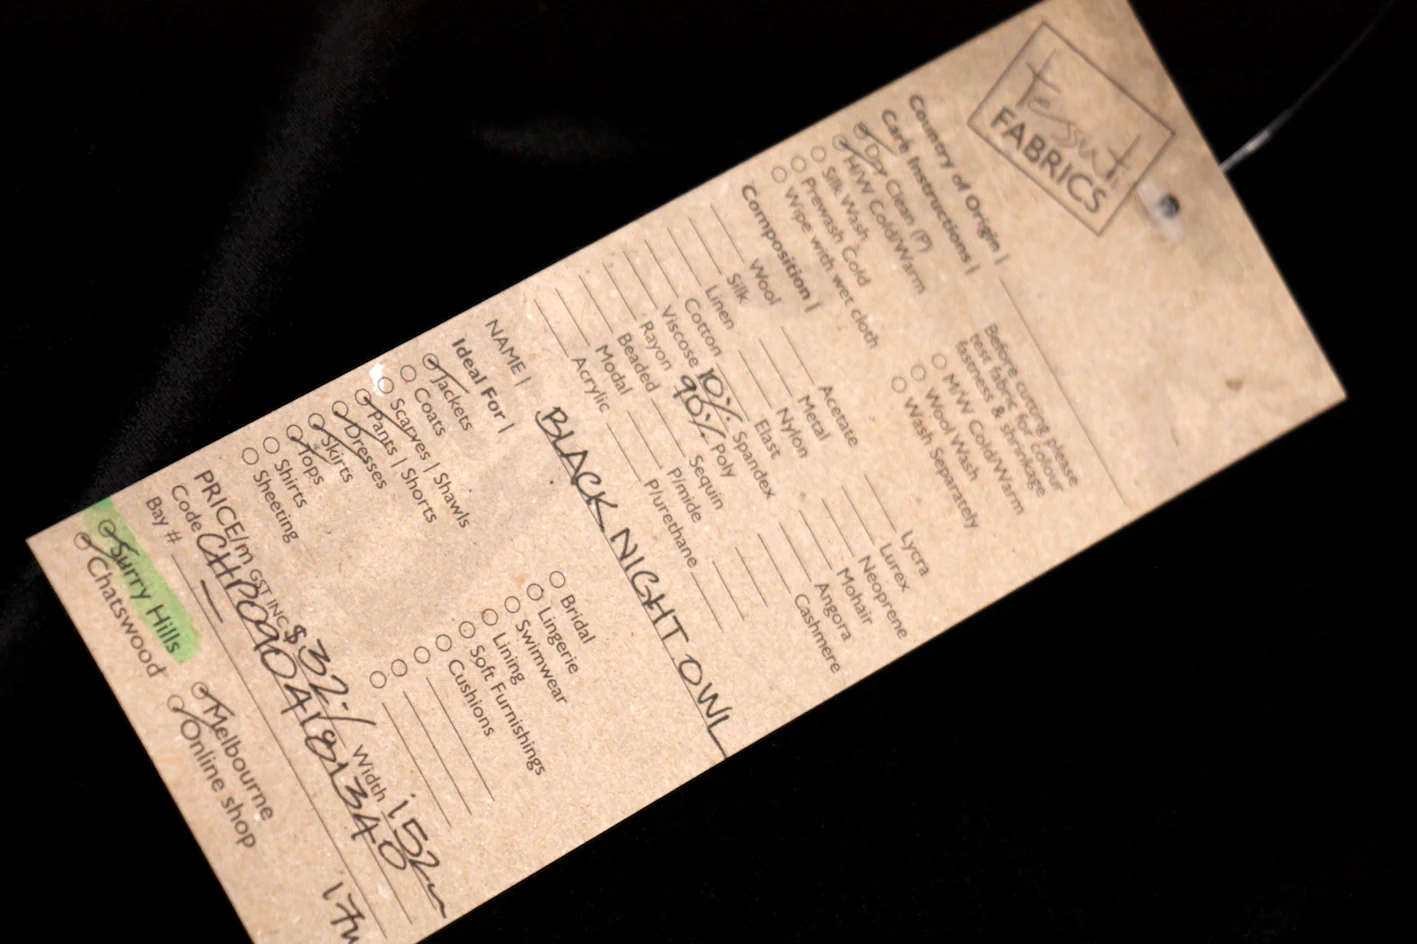 tessuti
FABRICS
Country of Origin |
Care Instructions |
Dry Clean (P)
H/W Cold/Warm
Silk Wash
Prewash Cold
Wipe with wet cloth
Before cutting please
test fabric for colour
fastness & shrinkage
M/W Cold/Warm
Wool Wash
Wash Separately
Composition |
Wool
Silk
Linen
Cotton
Viscose
Rayon
Beaded
Modal
Acrylic
Acetate
Metal
Nylon
Elast
10% Spandex
90% Poly
Sequin
P/mide
P/urethane
Lycra
Lurex
Neoprene
Mohair
Angora
Cashmere
NAME | BLACK NIGHT OWL
Ideal For |
Jackets
Coats
Scarves | Shawls
Pants | Shorts
Dresses
Skirts
Tops
Shirts
Sheeting
Bridal
Lingerie
Swimwear
Lining
Soft Furnishings
Cushions
PRICE/m GST INC $32.- Width 152
Code CHP0904181340
Bay #
Surry Hills
Chatswood
Melbourne
Online shop